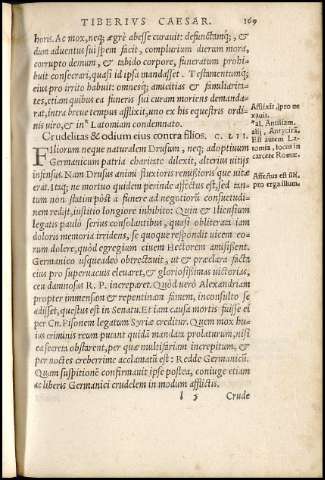 TIBERIVS CAESAR. 169
horis. Ac mox, neq; ægrè abesse curauit: defunctamq;, &
dum aduentus sui spem facit, complurium dierum mora,
corrupto demum, & tabido corpore, funeratam prohi
buit consecrari, quasi id ipsa mandasset. Testamentumq;
eius pro irrito habuit: omnesq; amicitias & familiarita-
tes, etiam quibus ea funeris sui curam moriens demanda-
rat, intra breue tempus afflixit, uno ex his equestris ordi
nis uiro, & in* Latomiam condemnato.
Afflixit, pro ue
xauit.
*al. Antliam.
alij, Antycirã.
Est autem La-
tomia, locus in
carcere Romæ.
Crudelitas & odium eius contra filios. C. LII.
FIliorum neque naturalem Drusum, neq; adoptiuum
Germanicum patria charitate dilexit, alterius uitijs
infensus. Nam Drusus animi fluxioris remissiorisq; uitæ
erat. Itaq; ne mortuo quidem perinde affectus est, sed tan-
tum non statim pòst à funere ad negotiorũ consuetudi-
nem redijt, iustitio longiore inhibito: Quin & Iliensium
legatis paulò serius consolantibus, quasi obliterata iam
doloris memoria irridens, se quoque respondit uicem eo-
rum dolere, quòd egregium ciuem Hectorem amisissent.
Germanico usqueadeo obtrectauit, ut & præclara facta
eius pro superuacuis eleuaret, & gloriosissimas uictorias,
ceu damnosas R. P. increparet. Quòd uerò Alexandriam
propter immensam & repentinam famem, inconsulto se
adisset, questus est in Senatu. Etiam causa mortis fuisse ei
per Cn. Pisonem legatum Syriæ creditur. Quem mox hu
ius criminis reum putant quidã mandata prolaturum, nisi
ea secreta obstarent, per quæ multifariam increpitum, &
per noctes creberrime acclamatũ est: Redde Germanicũ.
Quam suspitionẽ confirmauit ipse postea, coniuge etiam
ac liberis Germanici crudelem in modum afflictis.
Affectus est sũt,
pro erga illum.
l 3 Crude